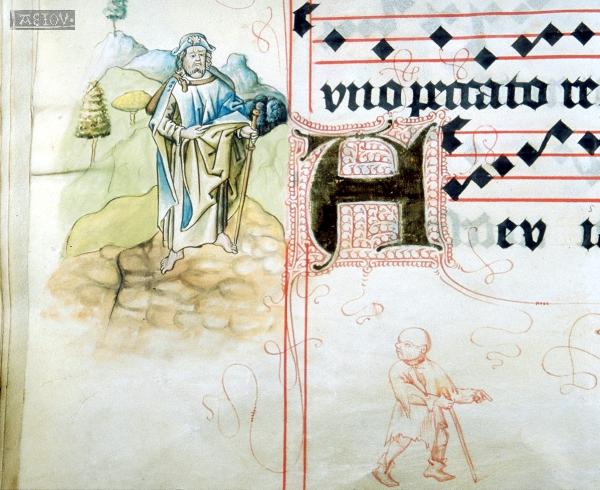 AEIOV
vno peccato re
Hev